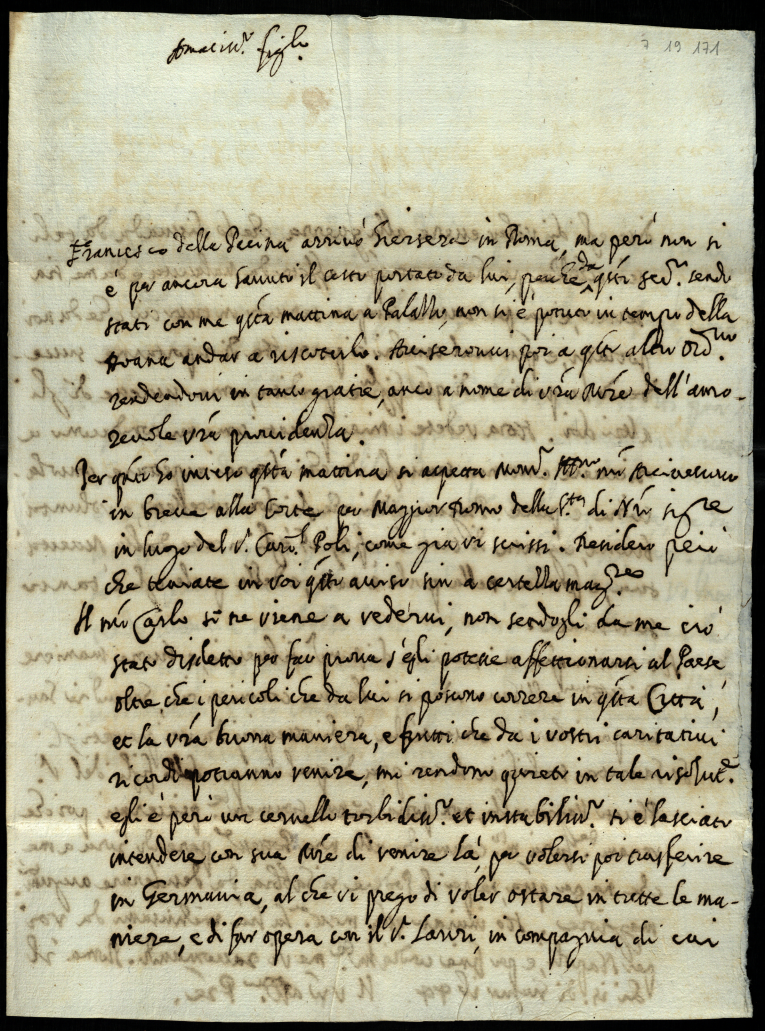 Amatiss.º figlo
7 19 171
Francesco della Pecina arrivò hiersera in Roma, ma però non si
è per ancora havuto il cesto portato da lui, perche da q.sti sed.ri sendo
stati con me q.sta mattina a Palazzo, non si è potuto in tempo della
doana andar a riscoterlo. Aviserovvi poi a q.sto altro ord.rio
rendendovi in tanto gratie, anco a nome di vr̃a mr̃e dell'amo-
revole vr̃a providenza.
Per q.nto hò inteso q.sta mattina si aspetta Mons.r Ill.mo mio Arcivescovo
in breve alla Corte per Maggiordomo della S.tà di N.ro Sig.re
in luogo del S.r Card.l Poli, come già vi scrissi. Desidero però
che teniate in voi q.sto aviso sin a certezza mag.re
Il mio Carlo se ne viene a vedervi, non sendogli da me ciò
stato disdetto per far prova s'egli potesse affettionarsi al Paese
oltre che i pericoli che da lui si possono correre in q.sta Città,
et la vr̃a buona maniera, e frutti che da i vostri caritativi
ricordi potranno venire, mi rendono quieto in tale risolut.e
egli è però un cervello torbidiss.º et instabiliss.º si è lasciato
intendere con sua mr̃e di venire là, per volersi poi trasferire
in Germania, al che vi prego di voler ostare in tutte le ma-
niere, e di far opera con il S.r Lauri, in compagnia di cui